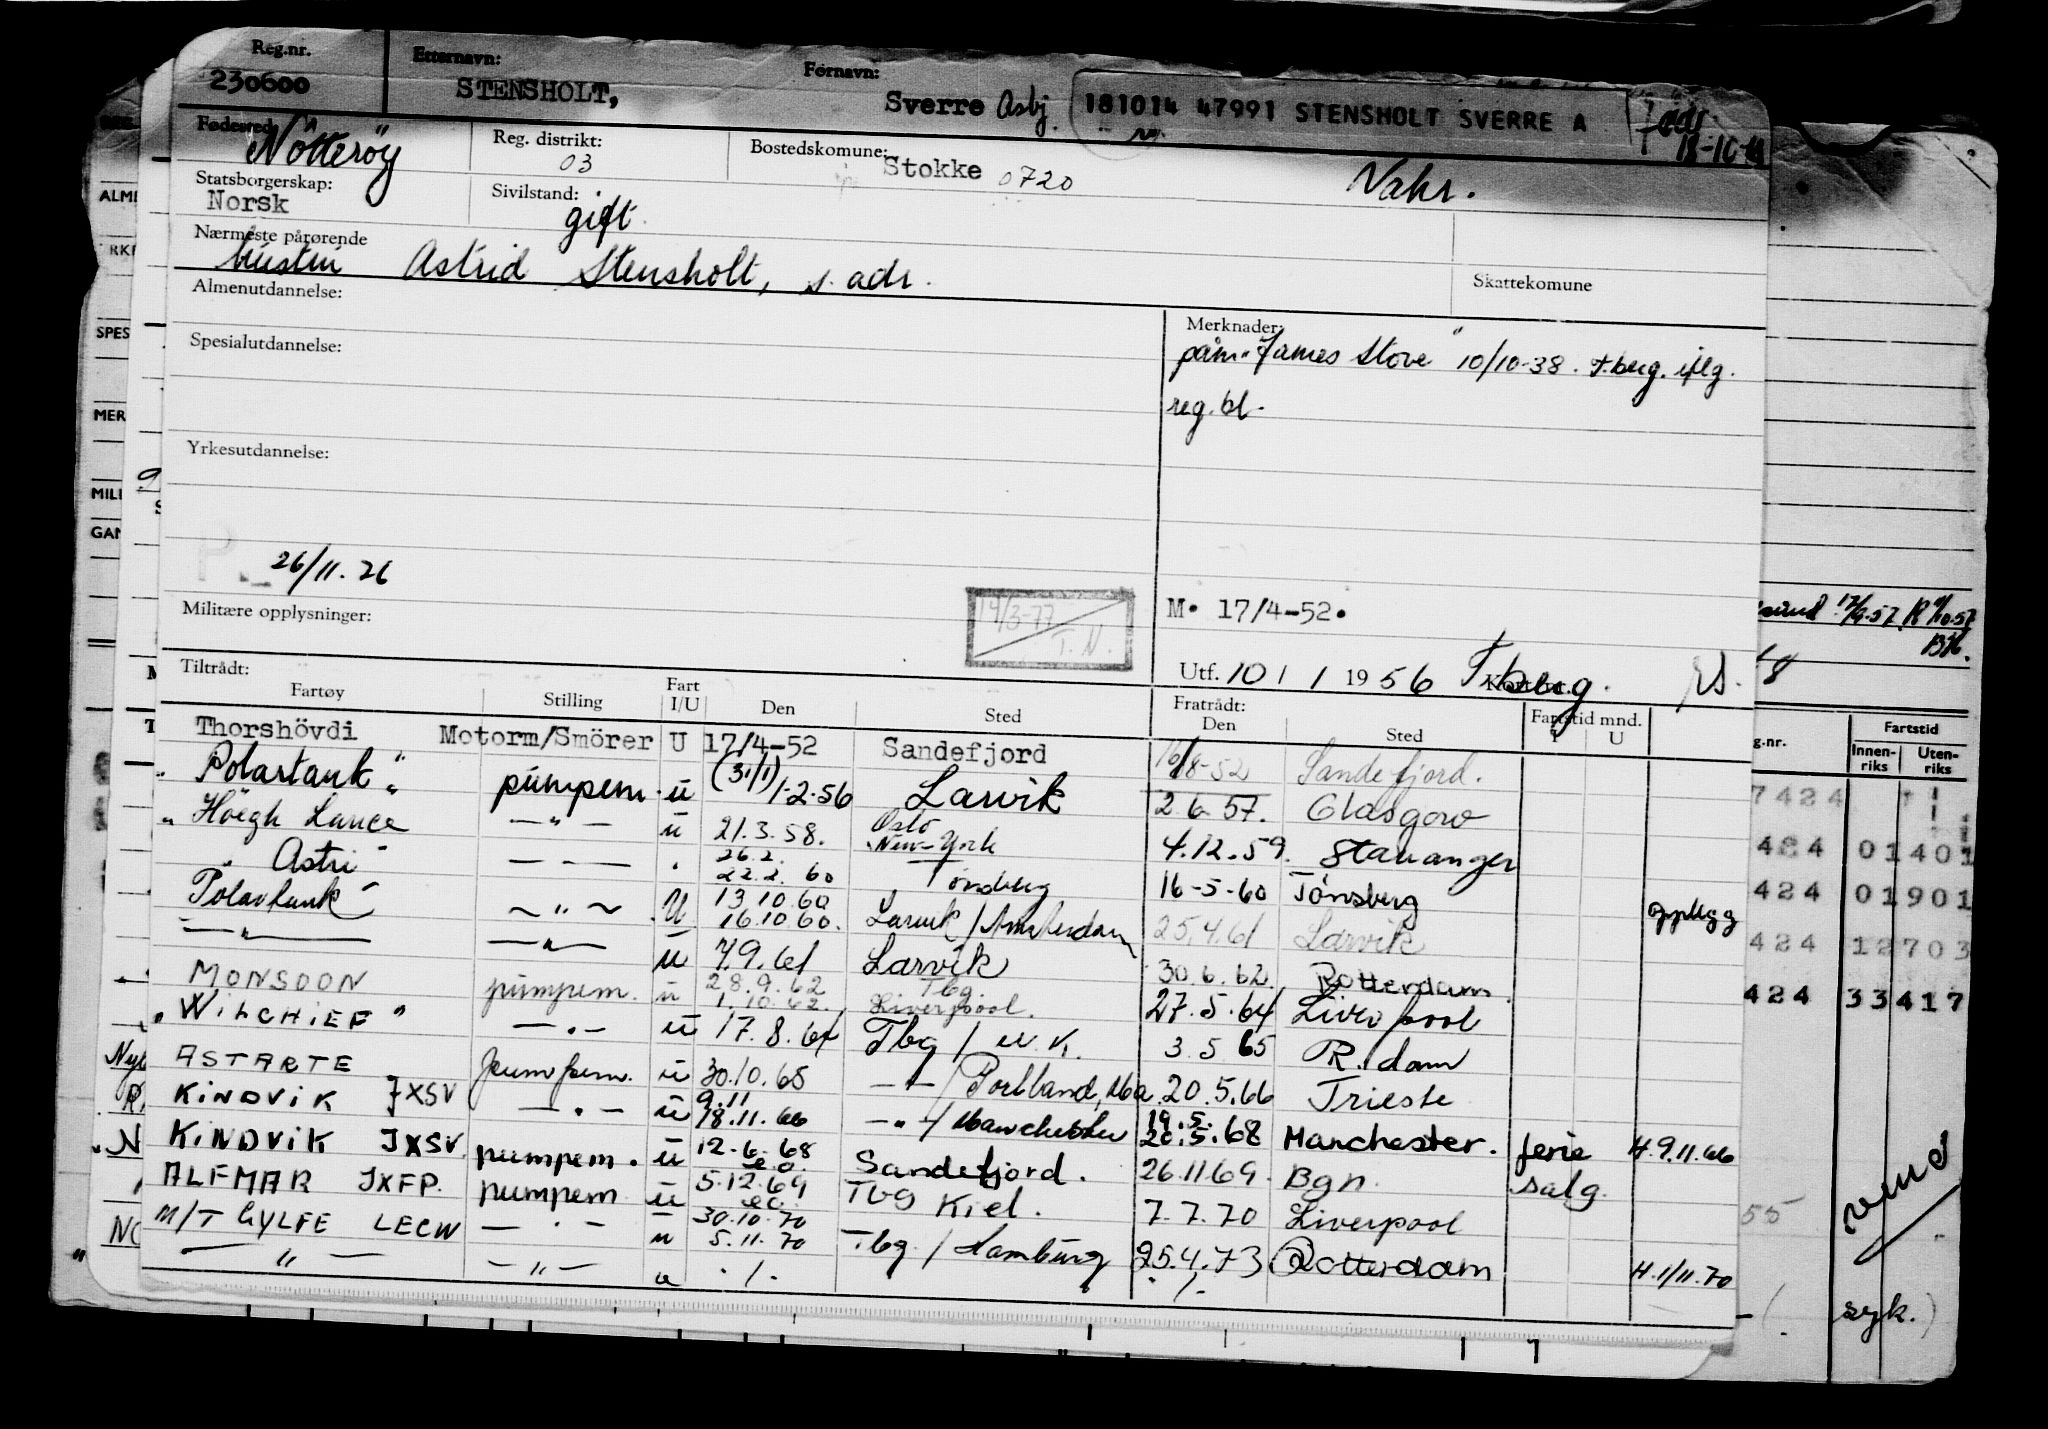 Reg.nr. Etternavn: Fornavn:
230600 STENSHOLT, Sverre Asbj. 181014 47991 STENSHOLT SVERRE A
Fødested Reg. distrikt: Bostedskomune:
Nötteröy 03 Stokke 0720 Vakr.
Statsborgerskap: Sivilstand:
Norsk gift
Nærmeste pårørende
hustru Astrid Stensholt, s. adr.
Almenutdannelse: Skattekomune
Merknader:
Spesialutdannelse: påm. "James Stove" 10/10-38. T.berg. iflg.
reg. bl.
Yrkesutdannelse:
26/11.76
Militære opplysninger: 14/3-77 T.N. M. 17/4-52.
Utf. 10/1 1956 T.berg.
Tiltrådt: Fratrådt:
Fartøy Stilling Fart I/U Den Sted Den Sted Fartstid mnd. I U
Thorshövdi Motorm/Smörer U 17/4-52 Sandefjord 16/8-52 Sandefjord.
"Polartank" pumpem. u (31/1) 1-2-56 Larvik 2.6.57. Glasgow
"Höegh Lance" — " — u 21.3.58. Oslo New-York 4.12.59. Stavanger
" Astri " — " — 26.2. 22.2.60 Tönsberg 16-5-60 Tönsberg opplegg
Polartank — " — U 13.10.60 16.10.60. Larvik / Amsterdam 25.4.61 Larvik
— " — — " — u 7.9.61 Larvik 30.6.62 Rotterdam.
MONSOON pumpem. u 28.9.62 1.10.62. Tbg Liverpool. 27.5.64 Liverpool
"WILCHIEF" — " — u 17.8.64 Tbg / U.K. 3.5.65 R.dam
ASTARTE pumpem. u 30.10.65 — " — / Portland, Usa. 20.5.66 Trieste
KINDVIK JXSV — " — u 9.11 18.11.66 — " — / Manchester 19.5. 20.5.68 Manchester. ferie H.9.11.66
KINDVIK JXSV. pumpem. u 12.6.68 Sandefjord. 26.11.69. Bgn. salg.
ALFMAR JXFP. pumpem u 5.12.69 Tbg Kiel. 7.7.70 Liverpool
M/T GYLFE LECW — " — u 30.10.70 5.11.70 Tbg. / Hamburg 25.4.73 Rotterdam H.1/11.70
— " — — " — u . / . . / .
ALME
SPES
MER
MILI
GAN
17/9-57
g.nr. Fartstid
Innenriks Utenriks
7424
424 01401
424 01901
424 12703
424 33417
55
vend
(syk.)